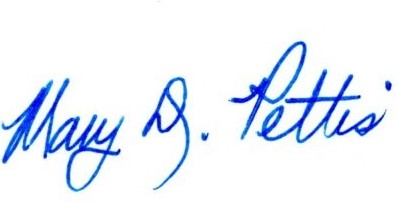 Mary D. Pettis